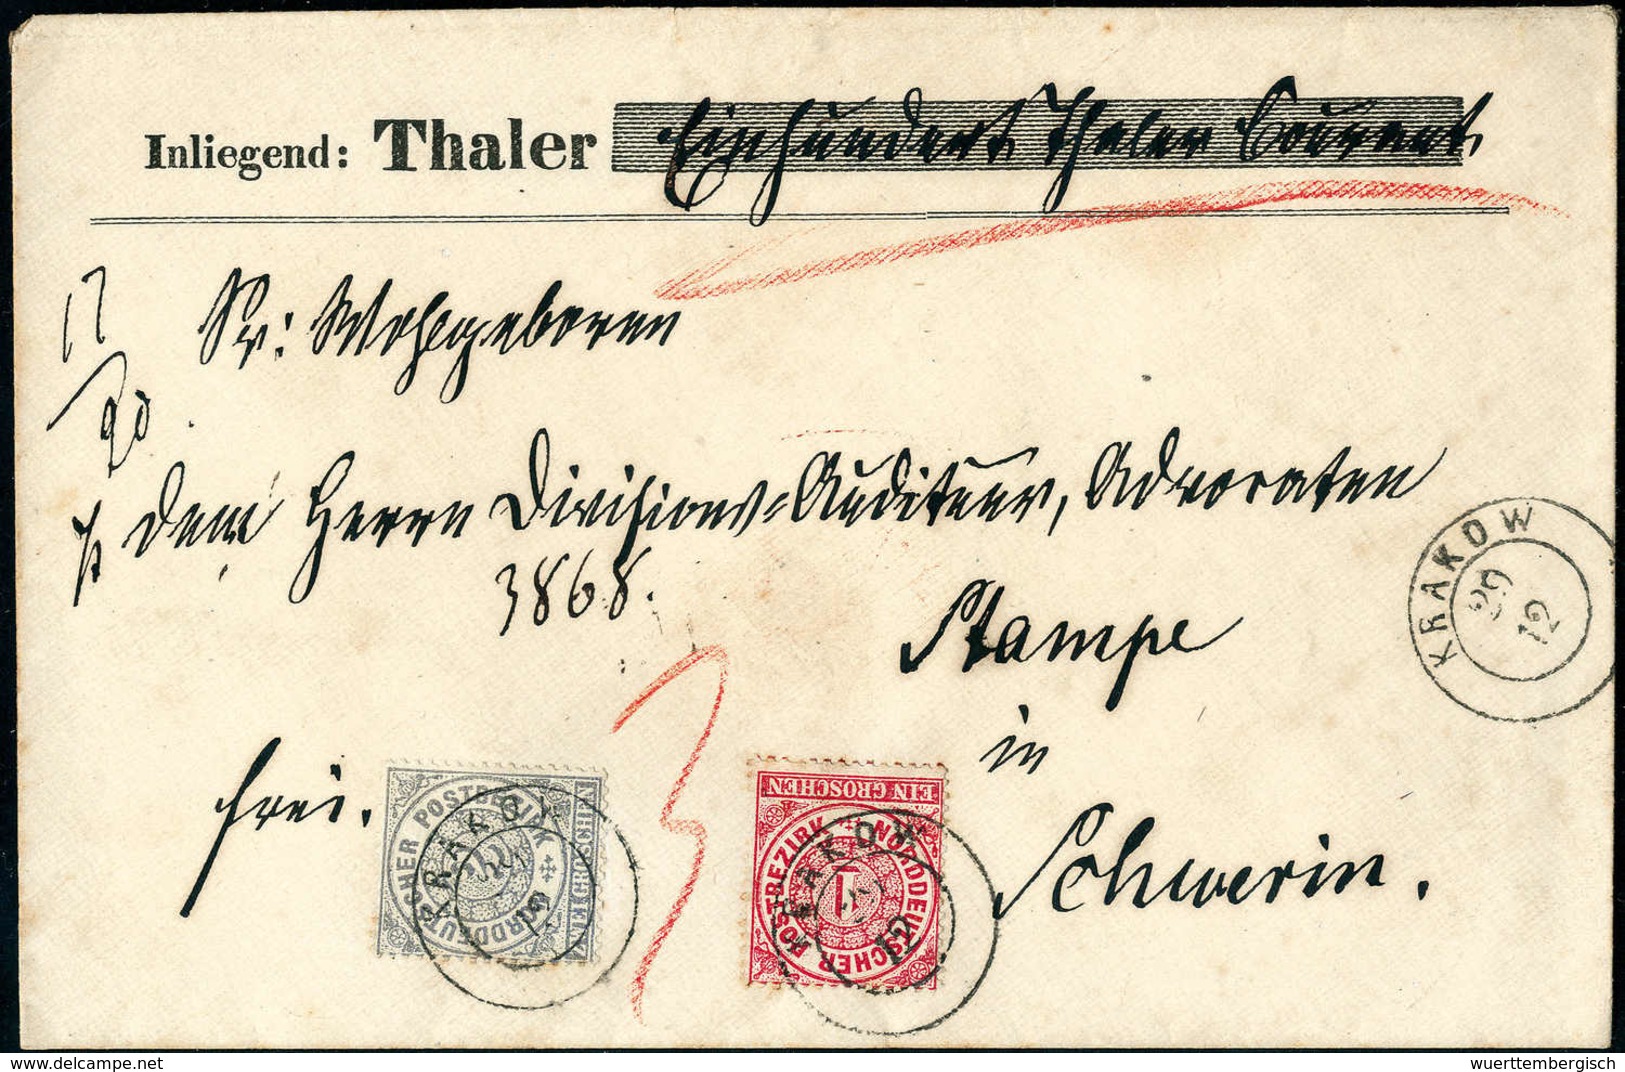 Inliegend: Thaler Einhundert Thaler Courant.
17
90
Sr: Wohlgeboren
dem Herrn Divisions-Auditeur, Advocaten
3868.
Stampe
in
Schwerin.
frei.
3
KRAKOW
29
12
NORDDEUTSCHER POSTBEZIRK
ZWEI GROSCHEN
KRAKOW
29
12
EIN GROSCHEN
NORDDEUTSCHER POSTBEZIRK
1
KRAKOW
29
12
Photo: www.delcampe.net
wuerttembergisch